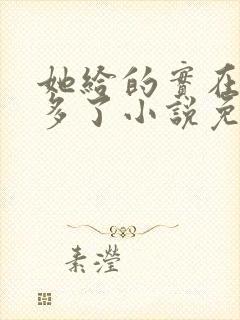 她給的實在
多了小說免
素瀅